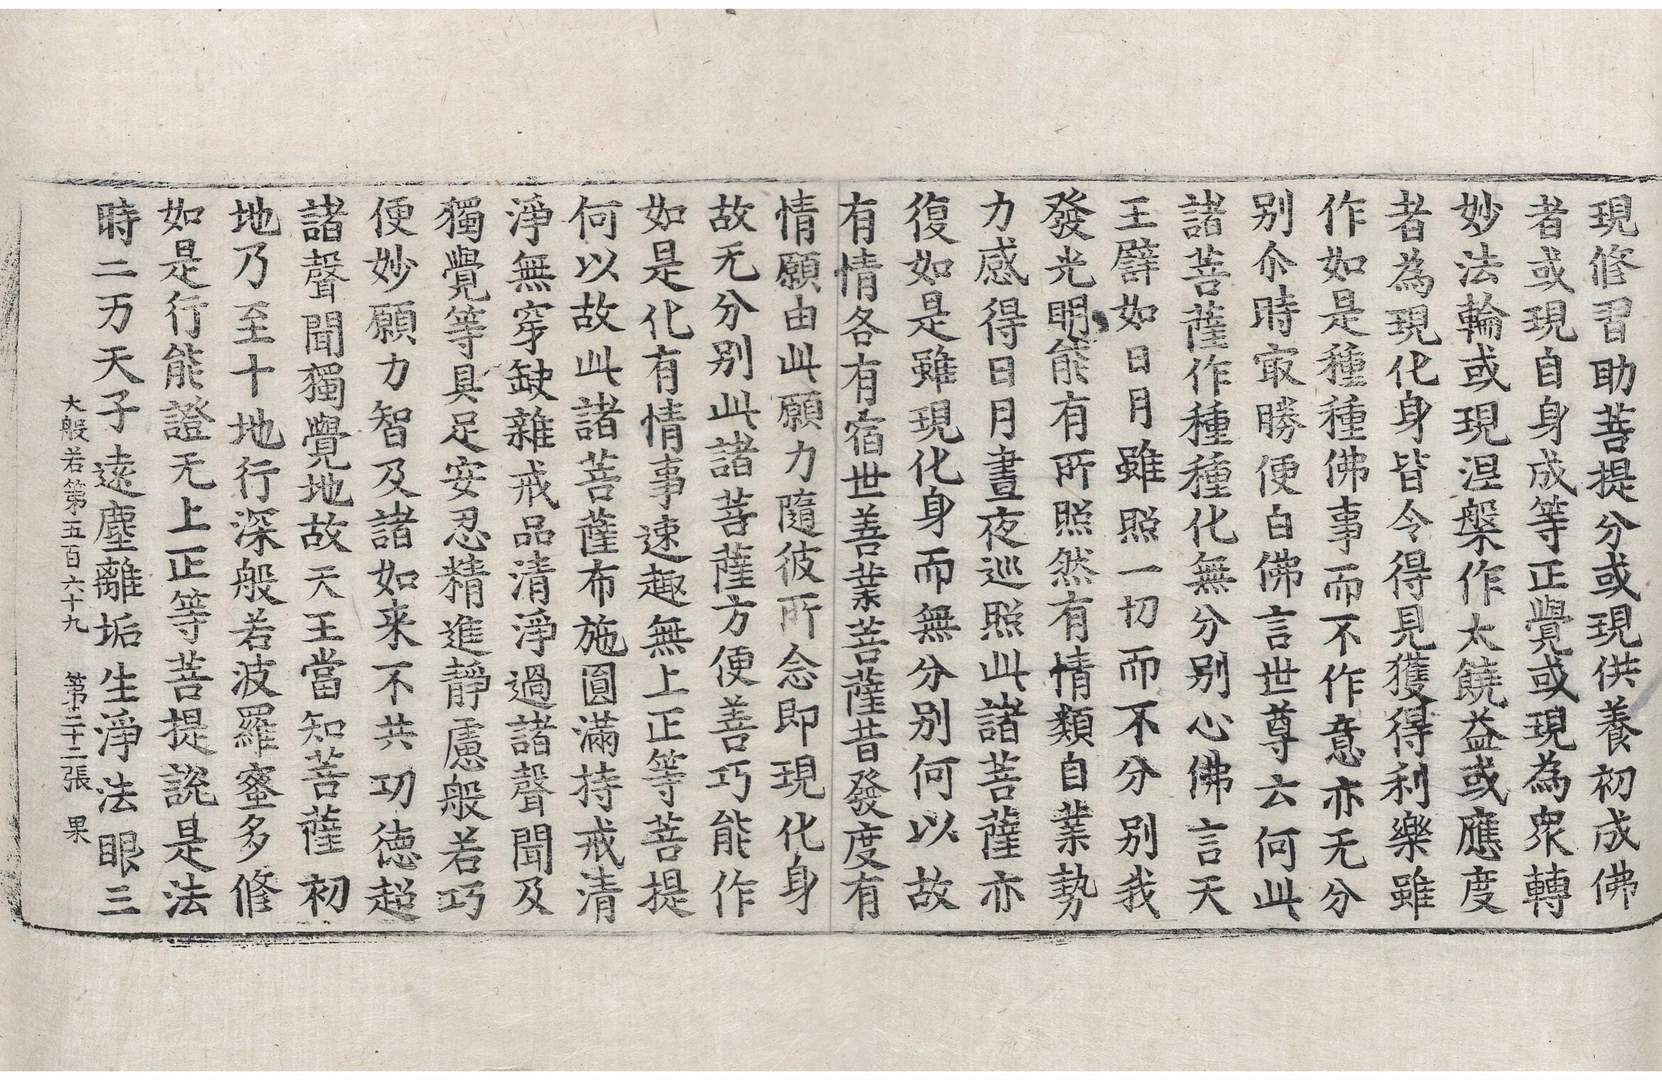 現修習助菩提分或現供養初成佛
者或現自身成等正覺或現為衆轉
妙法輪或現涅槃作大饒益或應度
者為現化身皆令得見獲得利樂雖
作如是種種佛事而不作意亦无分
别尒時㝡勝便白佛言世尊云何此
諸菩薩作種種化無分别心佛言天
王譬如日月雖照一切而不分别我
發光明能有所照然有情類自業勢
力感得日月晝夜巡照此諸菩薩亦
復如是雖現化身而無分别何以故
有情各有宿世善業菩薩昔發度有
情願由此願力隨彼所念即現化身
故无分别此諸菩薩方便善巧能作
如是化有情事速趣無上正等菩提
何以故此諸菩薩布施圓滿持戒清
淨無穿缺雜戒品清淨過諸聲聞及
獨覺等具足安忍精進靜慮般若巧
便妙願力智及諸如来不共功德超
諸聲聞獨覺地故天王當知菩薩初
地乃至十地行深般若波羅蜜多修
如是行能證无上正等菩提說是法
時二万天子遠塵離垢生淨法眼三
大般若第五百六十九 第二十二張 果